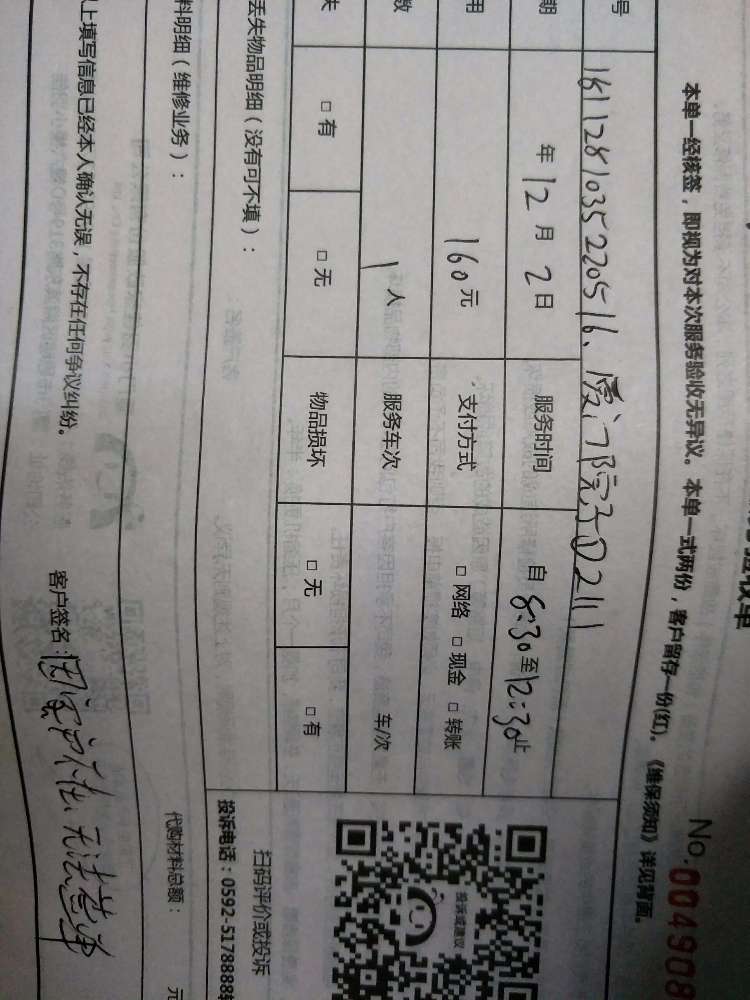 验收单
No.004908
本单一经核签，即视为对本次服务验收无异议。本单一式两份，客户留存一份(红)。《维保须知》详见背面。
号 1611281035220516、厦门院子02111
期 年12月2日 服务时间 自8:30至12:30止
用 160元 支付方式 □ 网络 □ 现金 □ 转账
数 1人 服务车次 车/次
失 □ 有 □ 无 物品损坏 □ 无 □ 有
投诉或建议
扫码评价或投诉
投诉电话：0592-5178888转
丢失物品明细（没有可不填）：
料明细（维修业务）：
代购材料总额： 元
上填写信息已经本人确认无误，不存在任何争议纠纷。
客户签名：因客户不在、无法签单